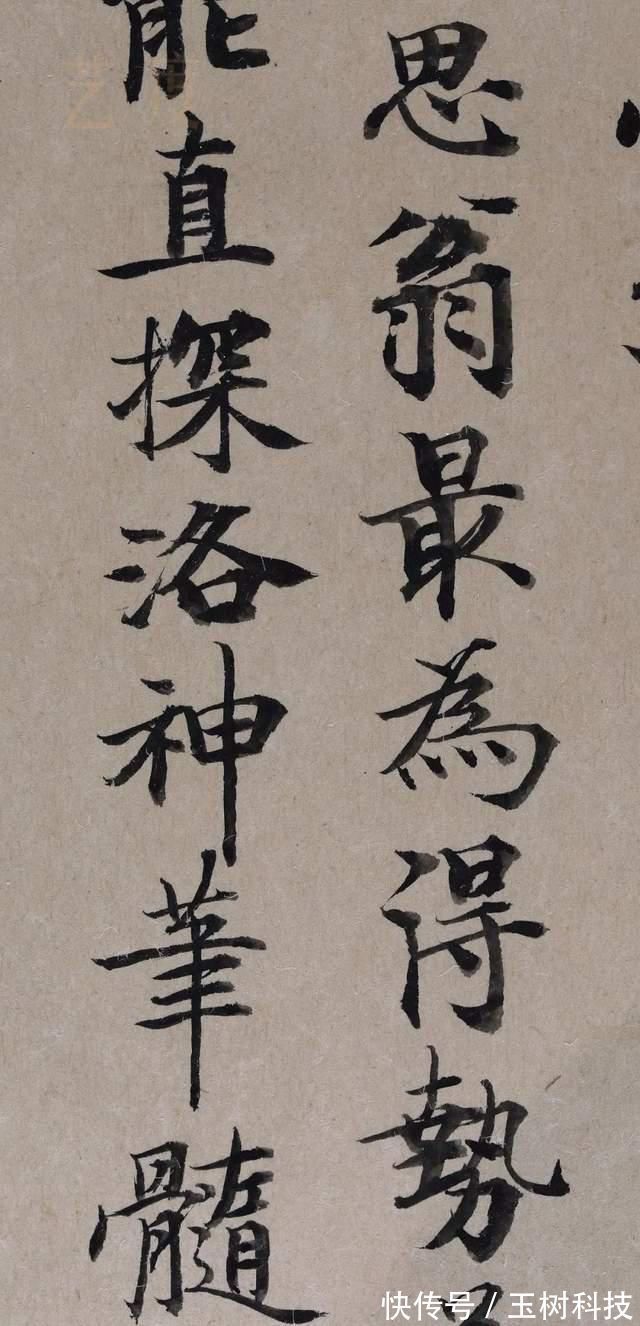 思翁最為得勢
能直探洛神筆髓
艺
快传号 / 玉树科技